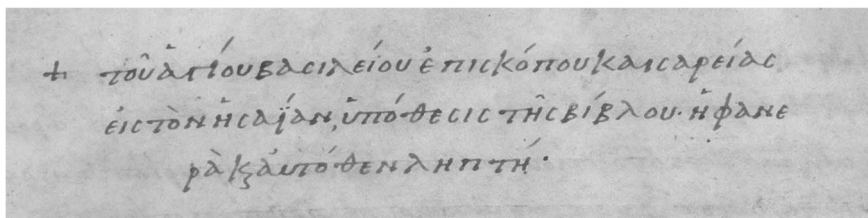 + τοῦ ἁγίου βασιλείου ἐπισκόπου καισαρείας
εἰς τὸν ἡσαΐαν, ὑπόθεσις τῆς βίβλου· ἡ φανε
ρὰ κ(αὶ) αὐτόθεν ληπτή·